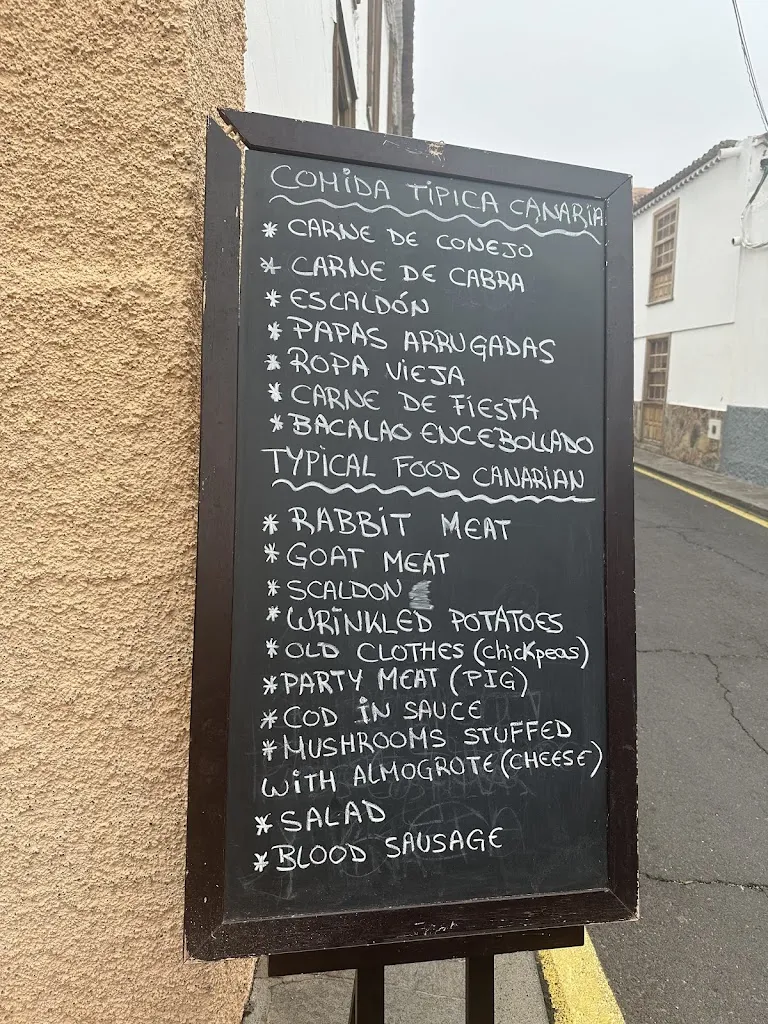 COMIDA TIPICA CANARIA
* CARNE DE CONEJO
* CARNE DE CABRA
* ESCALDÓN
* PAPAS ARRUGADAS
* ROPA VIEJA
* CARNE DE FIESTA
* BACALAO ENCEBOLLADO
TYPICAL FOOD CANARIAN
* RABBIT MEAT
* GOAT MEAT
* SCALDON
* WRINKLED POTATOES
* OLD CLOTHES (chickpeas)
* PARTY MEAT (PIG)
* COD IN SAUCE
* MUSHROOMS STUFFED
WITH ALMOGROTE (CHEESE)
* SALAD
* BLOOD SAUSAGE